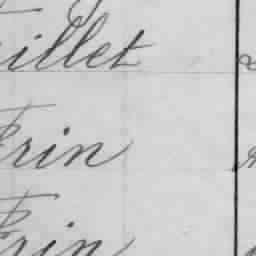 illet
Frin
Frin